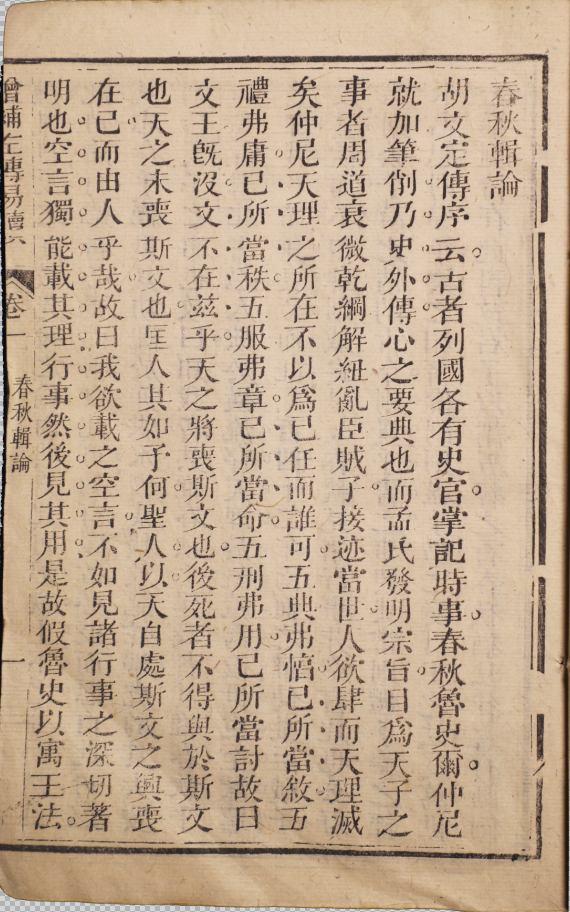 春秋輯論
胡文定傳序云古者列國各有史官掌記時事春秋魯史爾仲尼
就加筆削乃史外傳心之要典也而孟氏發明宗旨目爲天子之
事者周道衰微乾綱解紐亂臣賊子接迹當世人欲肆而天理滅
矣仲尼天理之所在不以爲已任而誰可五典弗惇已所當敘五
禮弗庸已所當秩五服弗章已所當命五刑弗用已所當討故曰
文王旣沒文不在兹乎天之將喪斯文也後死者不得與於斯文
也天之未喪斯文也匡人其如予何聖人以天自處斯文之興喪
在己而由人乎哉故曰我欲載之空言不如見諸行事之深切著
明也空言獨能載其理行事然後見其用是故假魯史以寓王法
增補左傳易讀
卷一
春秋輯論
一